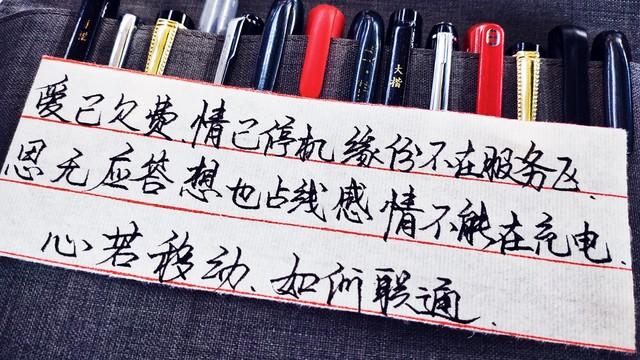 大楷
爱已欠费、情已停机缘份不在服务区、
思无应答想也占线感情不能在充电、
心若移动、如何联通、